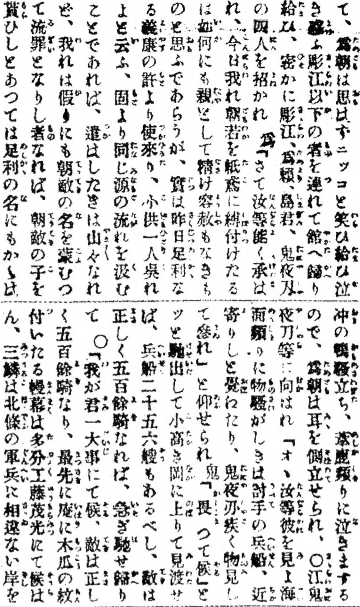 て、爲朝は思はずニッコと笑ひ給ひ泣
き惑ふ彫江以下の者を連れて館へ歸り
給ひ、密かに彫江、爲頼、島君、鬼夜刄
の四人を招かれ　爲「さて汝等能く承は
れ、今日我れ朝若を紙鳶に縛付けたる
は如何にも親として情け容赦もなきも
のと思ふであらうが、實は昨日足利な
る義康の許より使來り、小供一人呉れ
よと云ふ、固より同じ源の流れを汲む
ことであれば、遣はしたきは山々なれ
ど、我れは假りにも朝敵の名を蒙むつ
て流罪となりし者なれば、朝敵の子を
貰ひしとあつては足利の名にもかゝは
冲の鴨騷立ち、葦鹿頻りに泣きまする
ので、爲朝は耳を側立せられ、〇江鬼
夜刄等に向はれ「オヽ汝等彼を見よ海
面頻りに物騷がしきは討手の兵船、近
寄りしと覺わたり、鬼夜刄疾く物見し
て參れ」と仰せられ　鬼「畏つて候」と
ッと馳出して小高き岡に上りて見渡せ
ば、兵船二十五六艘もあるべし、敵は
正しく五百餘騎なれば、急ぎ馳せ歸り
て　〇「我が君一大事にて候、敵は正し
く五百餘騎なり、最先に庵に木瓜の紋
付いたる幔幕は多分工藤茂光にて候は
ん、三鱗は北條の軍兵に相違ない岸を